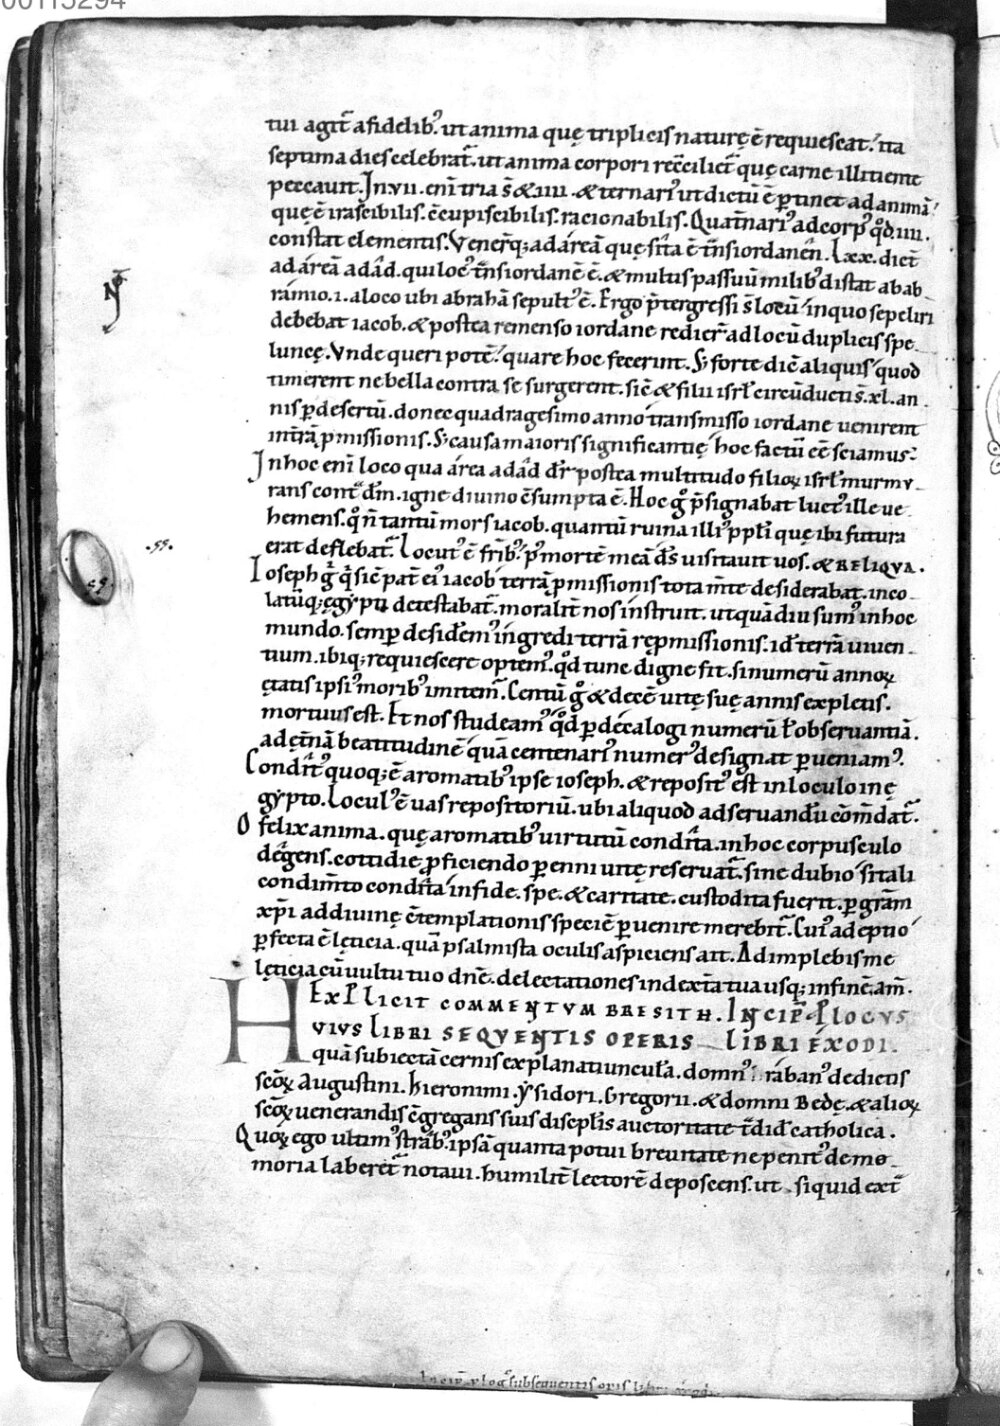 00115294
tui agit̄ a fidelib᾽. ut anima quę triplicis naturę ē requiescat. ita
septima dies celebrat̄. ut anima corpori rec̄ciliet̄ quę carne illiciente
peccauit. In vii. eni tria s̄ & iiii. & ternari᾽ ut dictū ē ꝑtinet ad animā
quę ē irascibilis. c̄cupiscibilis. racionabilis. Quat̄nari᾽ ad corp᾽ qđ. iiii.
constat elementis. Venerq; ad áreā quę sita ē t̄nsiordanēn. Lxx. dict̄
ad áreā adâd. qui loc᾽ t̄nsiordanē ē. & multis passuū milib᾽ distat ab ab
ramio. i. a loco ubi abrahā sepult᾽ ē. Ergo p̄tergressi s̄ locū in quo sepeliri
debebat iacob. & postea remenso iordane redier̄ ad locū duplicis spe
luncę. Vnde queri potē. quare hoc fecerint. S; forte dic̄ aliquis quod
timerent ne bella contra se surgerent. sic̄ & filii isrł circūducti s̄. xl. an
nis ꝑ desertū. donec quadragesimo anno transmisso iordane uenirent
in trā ꝓmissionis. S; causa maioris significantię hoc factū cē sciamus.
In hoc eni loco qua área adâd dr̄ postea multitudo filioꝝ isrł murmu
rans cont̄ dm̄. igne diuino c̄sumpta ē. Hoc g᾽ p̄signabat luct᾽ ille ue
hemens. q᾽ n̄ tantū mors iacob. quantū ruina illi᾽ ppłi quę ibi futura
erat deflebat̄. Locut᾽ ē frīb᾽. p᾽ mortē meā ds̄ uisitauit uos. & RELIQVA.
.99.
Ioseph g᾽ q᾽ sic̄ pat̄ ei᾽ iacob terrā ꝓmissionis tota m̄te desiderabat. inco
latūq; ęgypti detestabat̄. moralit̄ nos instruit. ut quādiu sum᾽ in hoc
mundo. semꝑ desidem᾽ ingredi terrā rępmissionis. id ÷ terrā uiuen
tium. ibiq; requiescere optem᾽. qđ tunc digne fit. si numerū annoꝝ
ętatis ipsi᾽ morib᾽ imitem̄. Centū g᾽ & decē uitę suę annis expletis.
mortuus est. Et nos studeam᾽ qđ ꝑ decalogi numerū ł observantiā.
ad ęt̄nā beatitudinē quā centenari᾽ numer᾽ designat ꝑueniam᾽.
Condit᾽ quoq; ē aromatib᾽ ipse ioseph. & reposit᾽ est in loculo in ę
gypto. Locul᾽ ē uas repositoriū. ubi aliquod ad seruandū com̄dat̄.
O felix anima. quę aromatib᾽ uirtutū condita. in hoc corpusculo
dégens. cottidie ꝓficiendo ꝑenni uitę reseruat̄. sine dubio si tali
condim̄to condita in fide. spe. & caritate. custodita fuerit. ꝑ gr̄am
xp̄i ad diuinę c̄templationis speciē ꝑuenire merebit̄. Cui᾽ adeptio
ꝑfecta ē lęticia. quā psalmista oculis aspiciens ait. Adimplebis me
lęticia cū uultu tuo dn̄e. delectationes in dext̄a tua usq; in finē. am̄.
EXPLICIT COMMENTVM BRESITH. INCIP̄. PLOCVS
HVIVS LIBRI SEQVENTIS OPERIS LIBRI ÉXODI.
quā subiectā cernis explanatiunculā. domn᾽ raban᾽ de dictis
scōꝝ Augustini. hieronimi. ysidori. Gregorii. & domni Bedę. & alioꝝ
scōꝝ uenerandis c̄gregans suis disciplis auctoritate t̄didit catholica.
Quoꝝ ego ultim᾽ strab᾽. ipsā quanta potui breuitate ne penit᾽ de me
moria laberet̄ notaui. humilit̄ lectorē deposcens. ut siquid ext̄